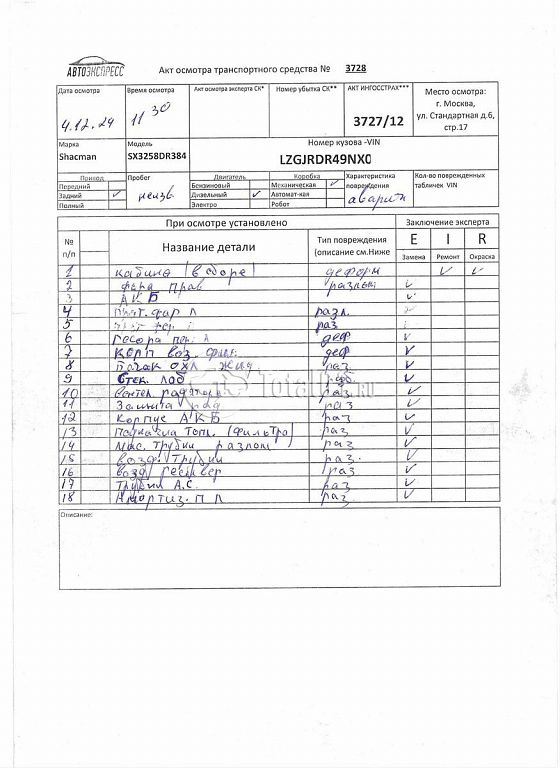 АВТОЭКСПРЕСС
Акт осмотра транспортного средства № 3728
Дата осмотра Время осмотра Акт осмотра эксперта СК* Номер убытка СК** АКТ ИНГОССТРАХ*** Место осмотра:
г. Москва,
ул. Стандартная д.6,
стр.17
4.12.24 11 30 3727/12
Марка Модель Номер кузова -VIN
Shacman SX3258DR384 LZGJRDR49NX0
Привод Пробег Двигатель Коробка Характеристика повреждения Кол-во поврежденных табличек VIN
Передний Бензиновый Механическая ✓
Задний ✓ неизв. Дизельный ✓ Автомат-кая аварийн
Полный Электро Робот
При осмотре установлено Заключение эксперта
№ п/п Название детали Тип повреждения (описание см.Ниже E I R
Замена Ремонт Окраска
1 кабина (в сборе) деформ ✓ ✓
2 фара прав разбит ✓
3 АКБ ✓
4 фар Л разл. ✓
5 раз
6 пер. деф ✓
7 корп воз. фил. деф ✓
8 Бачок охл. жид раз ✓
9 Стек. лоб ✓
TotalD.ru
10 вентел. радиатора раз ✓
11 Защита рад раз ✓
12 Корпус АКБ раз ✓
13 топл. (фильтра) раз ✓
14 мас. трубки разлом раз ✓
15 возд. трубки раз. ✓
16 возд ресивер раз ✓
17 Трубки А.С. раз ✓
18 Амортиз. П Л раз. ✓
Описание: